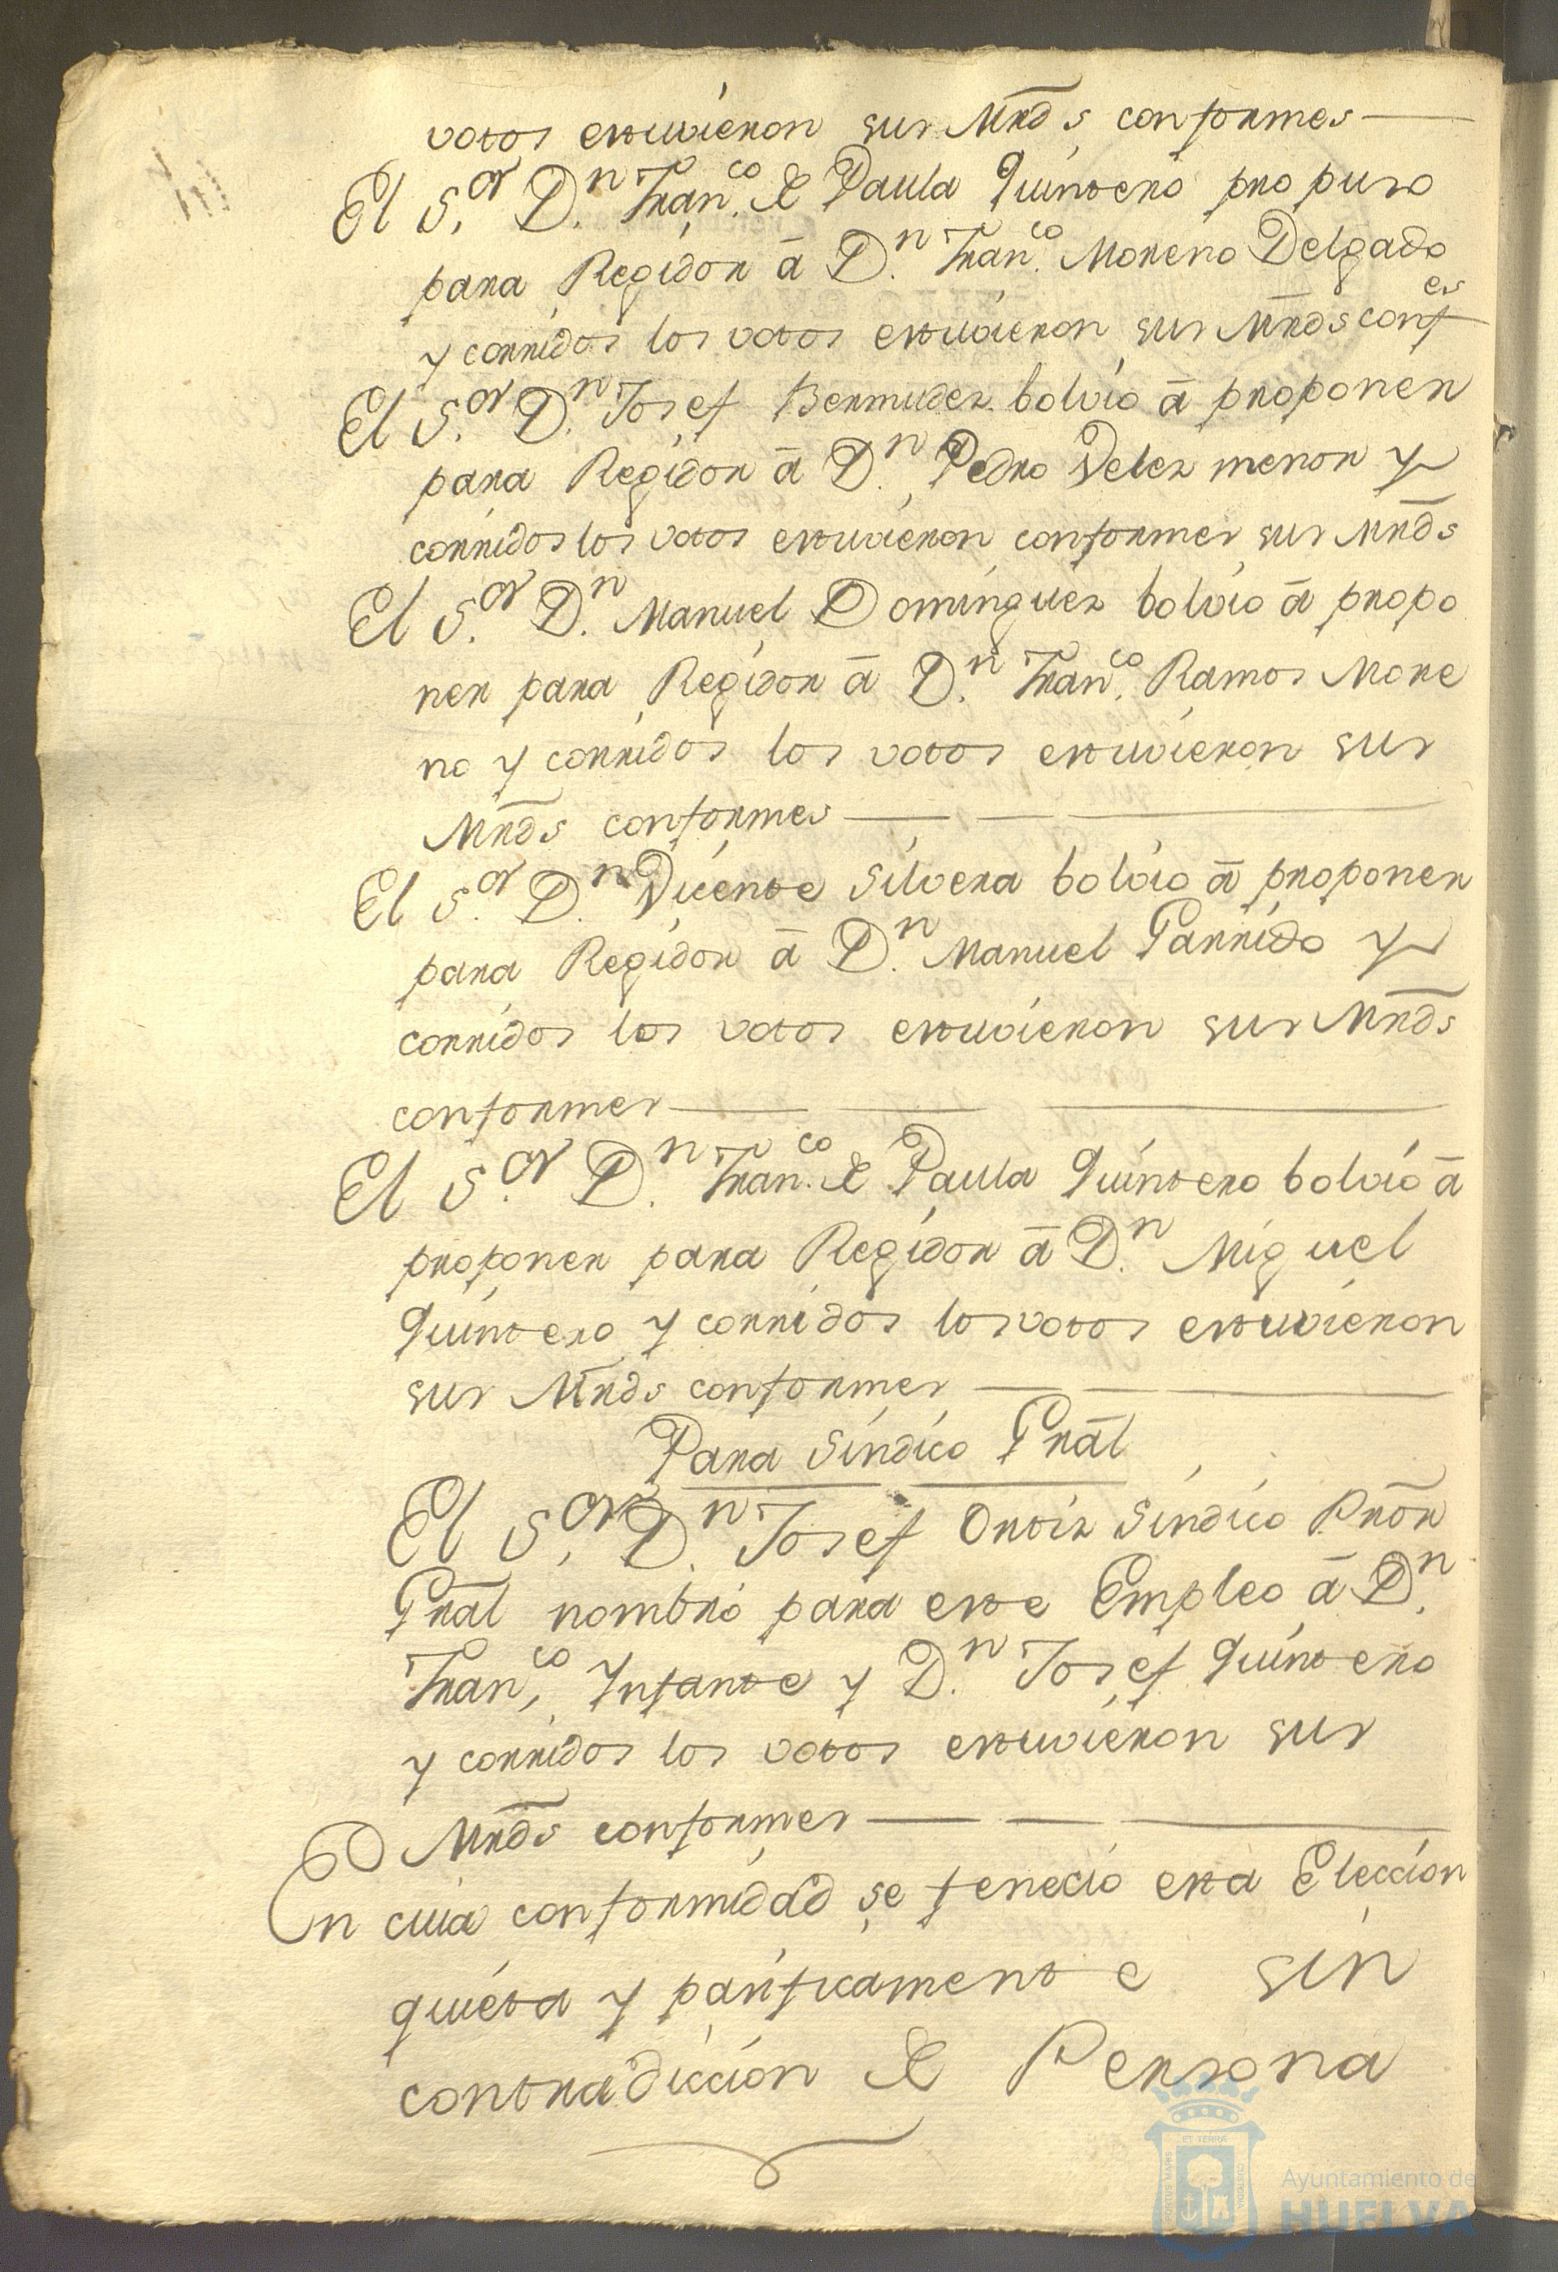 votos estuvieron sus Mrds conformes
El S.or D.n Fran.co de Paula Quintero propuso
para Regidor â D.n Fran.co Moreno Delgado
y corridos los votos estuvieron sus Mrds confes
El S.or D.n Josef Bermudez bolvio â proponer
para Regidor â D.n Pedro Velez menor y
corridos los votos estuvieron conformes sus Mrds
El S.or D.n Manuel Dominguez bolvio â propo
ner para Regidor â D.n Fran.co Ramos More
no y corridos los votos estuvieron sus
Mrds conformes
El S.or D.n Vicente Silvera bolvio â proponer
para Regidor â D.n Manuel Garrido y
corridos los votos estuvieron sus Mrds
conformes
El S.or D.n Fran.co de Paula Quintero bolvio â
proponer para Regidor â D.n Miguel
Quintero y corridos los votos estuvieron
sus Mrds conformes
Para Sindico Gral
El S.or D.n Josef Ortiz Sindico Pror
Gral nombró para este Empleo â D.n
Fran.co Ynfante y D.n Josef Quintero
y corridos los votos estuvieron sus
Mrds conformes
En cuia conformidad se feneció esta Elección
quieta y pasificamente sin
contradiccion de Persona
Ayuntamiento de
HUELVA